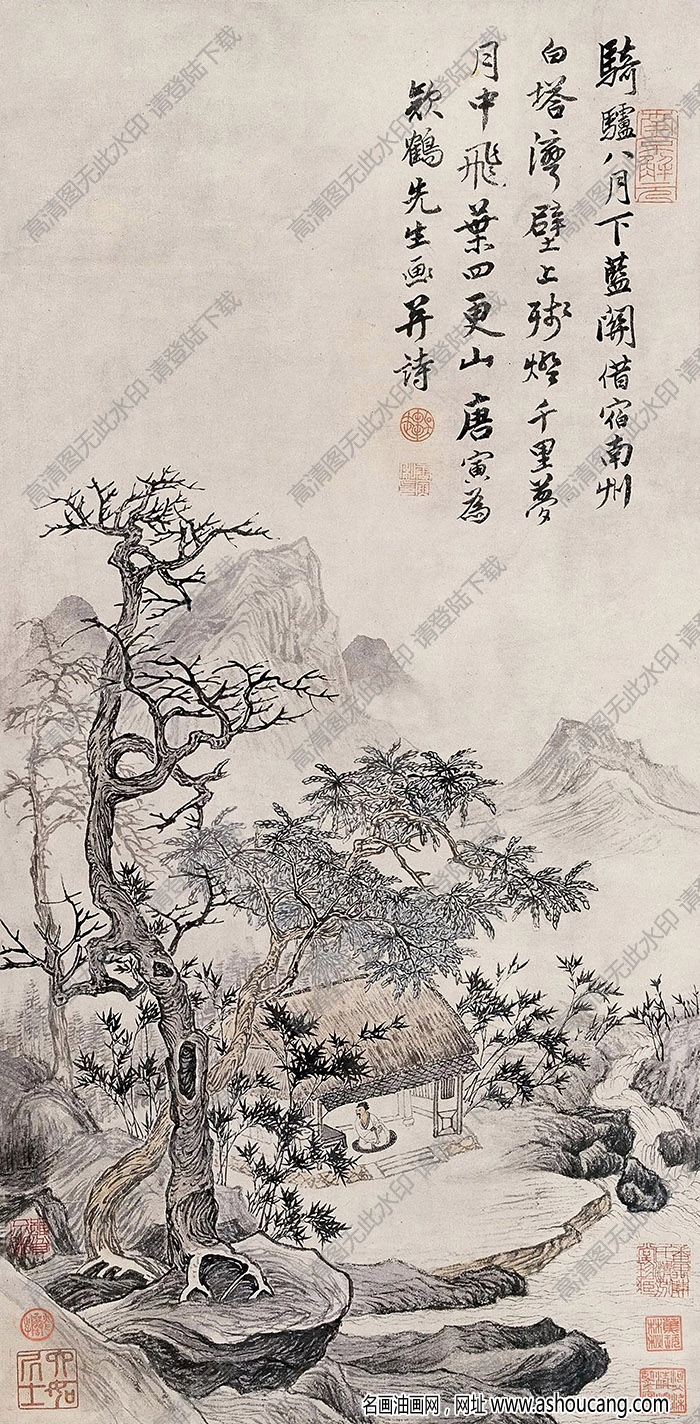 騎驢八月下藍關借宿南州
白塔灣壁上殘燈千里夢
月中飛葉四更山唐寅為
款鶴先生画并詩
南京解元
六如居士
高清图无此水印 请登陆下载
名画油画网，网址 www.ashoucang.com